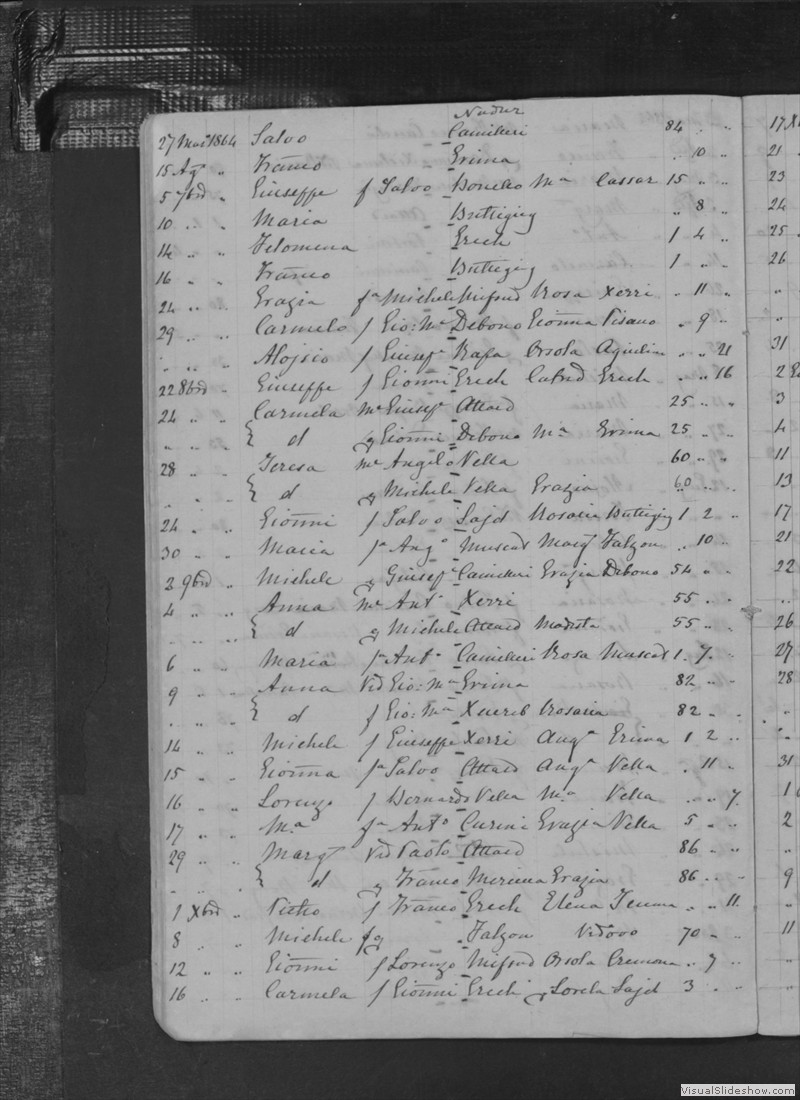 Nadur
27 Mar: 1864 Salvo Camilleri 84 17 X
15 Ag " Franco Grima . 10 " 21
5 7bre " Giuseppe f Salvo Bonello Ma Cassar 15 " " 23
10 " " Maria Buttigieg " 8 " 24
14 " " Filomena Grech 1 4 " 25
16 " " Franco Buttigieg 1 " " 26
24 " " Grazia fa Michele Mifsud Rosa Xerri " 11 " "
29 " " Carmelo f Gio: Ma Debono Gionna Pisano " 9 " "
" " " Alojsio f Giusep Rapa Orsola Agius " " 21 31
22 8bre " Giuseppe f Gionni Grech Catnd Grech " " 16 2
24 " " Carmela Me Giusep Attard 25 " " 3
" " " { d f Gionni Debono Ma Grima 25 " " 4
28 " " Teresa Me Angelo Vella 60 " " 11
" " " { d f Michele Vella Grazia 60 " " 13
24 " " Gionni f Salvo Sajd Rosaria Buttigieg 1 2 " 17
30 " " Maria fa Ango Muscat Marg Falzon " 10 " 21
2 9bre " Michele f Giusep Camilleri Grazia Debono 54 " " 22
4 " " Anna Me Anto Xerri 55 " " "
" " " { d f Michele Attard Modesta 55 " " 26
6 " " Maria fa Anto Camilleri Rosa Muscat 1 7 " 27
9 " " Anna Vid Gio: Ma Grima 82 " " 28
" " " { d f Gio: Ma Xuereb Rosaria 82 " " "
14 " " Michele f Giuseppe Xerri Anga Grima 1 2 " "
15 " " Gionna fa Salvo Attard Anga Vella " 11 " 31
16 " " Lorenzo f Bernardo Vella Ma Vella " " 7 1
17 " " Ma fa Anto Curmi Grazia Vella 5 " " 2
29 " " Marg Vid Paolo Attard 86 " "
" " " { d f Franco Mercieca Grazia 86 " " 9
1 Xbre " Pietro f Franco Grech Elena " " 11 "
8 " " Michele f Falzon Vedovo 70 " " 11
12 " " Gionni f Lorenzo Mifsud Orsola Cremona " 7 " "
16 " " Carmela f Gionni Grech f Loreta Sajd 3 " " "
VisualSlideshow.com